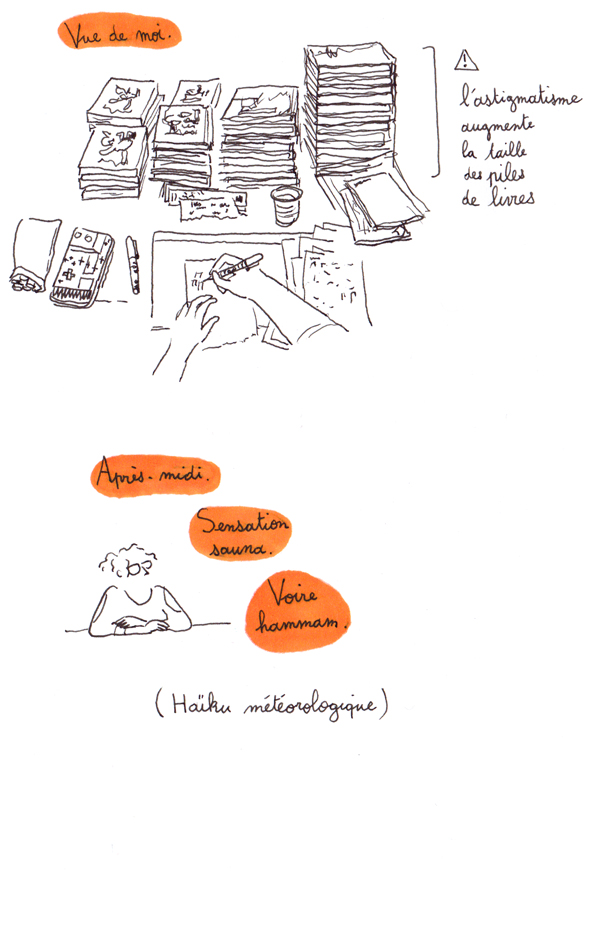 Vue de moi.
l'astigmatisme
augmente
la taille
des piles
de livres
Après-midi.
Sensation
sauna.
Voire
hammam.
(Haïku météorologique)